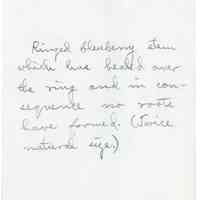 Ringed blueberry stem
which has healed over
the ring and in con-
sequence no roots
have formed. (Twice
natural size.)